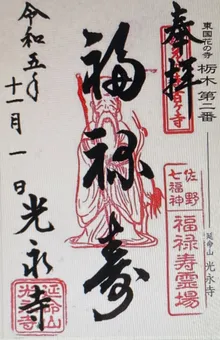 奉拝
東国花の寺
栃木 第二番
福禄寿
佐野
七福神
福禄寿霊場
延命山 光永寺
令和五年
十一月一日
光永寺
延命山
光永寺